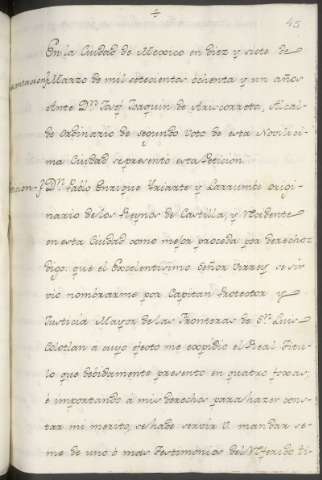 45
En la Ciudad de Mexico en diez y siete de
Marzo de mil setecientos ochenta y un años
Ante Dn. Josef Joaquin de Ariscorreta, Alcal-
de Ordinario de segundo Voto de esta Novilisi-
ma Ciudad se presento esta Peticion
Dn. Pablo Enrique Yriarte y Larraumbe origi-
nario de los Reynos de Castilla, y Residente
en esta Ciudad como mejor proceda por derecho
digo: que el Excelentisimo Señor Virrey se sir-
vió nombrarme por Capitan Protector y
Justicia Mayor de las Fronteras de Sn. Luis
Colotlan a cuyo efecto me expidio el Real Titu-
lo que debidamente presento en quatro foxas,
é importando á mis derechos para hazer cons-
tar mi merito, se hade servir V. mandar se-
me de uno ó mas Testimonios del Referido ti-